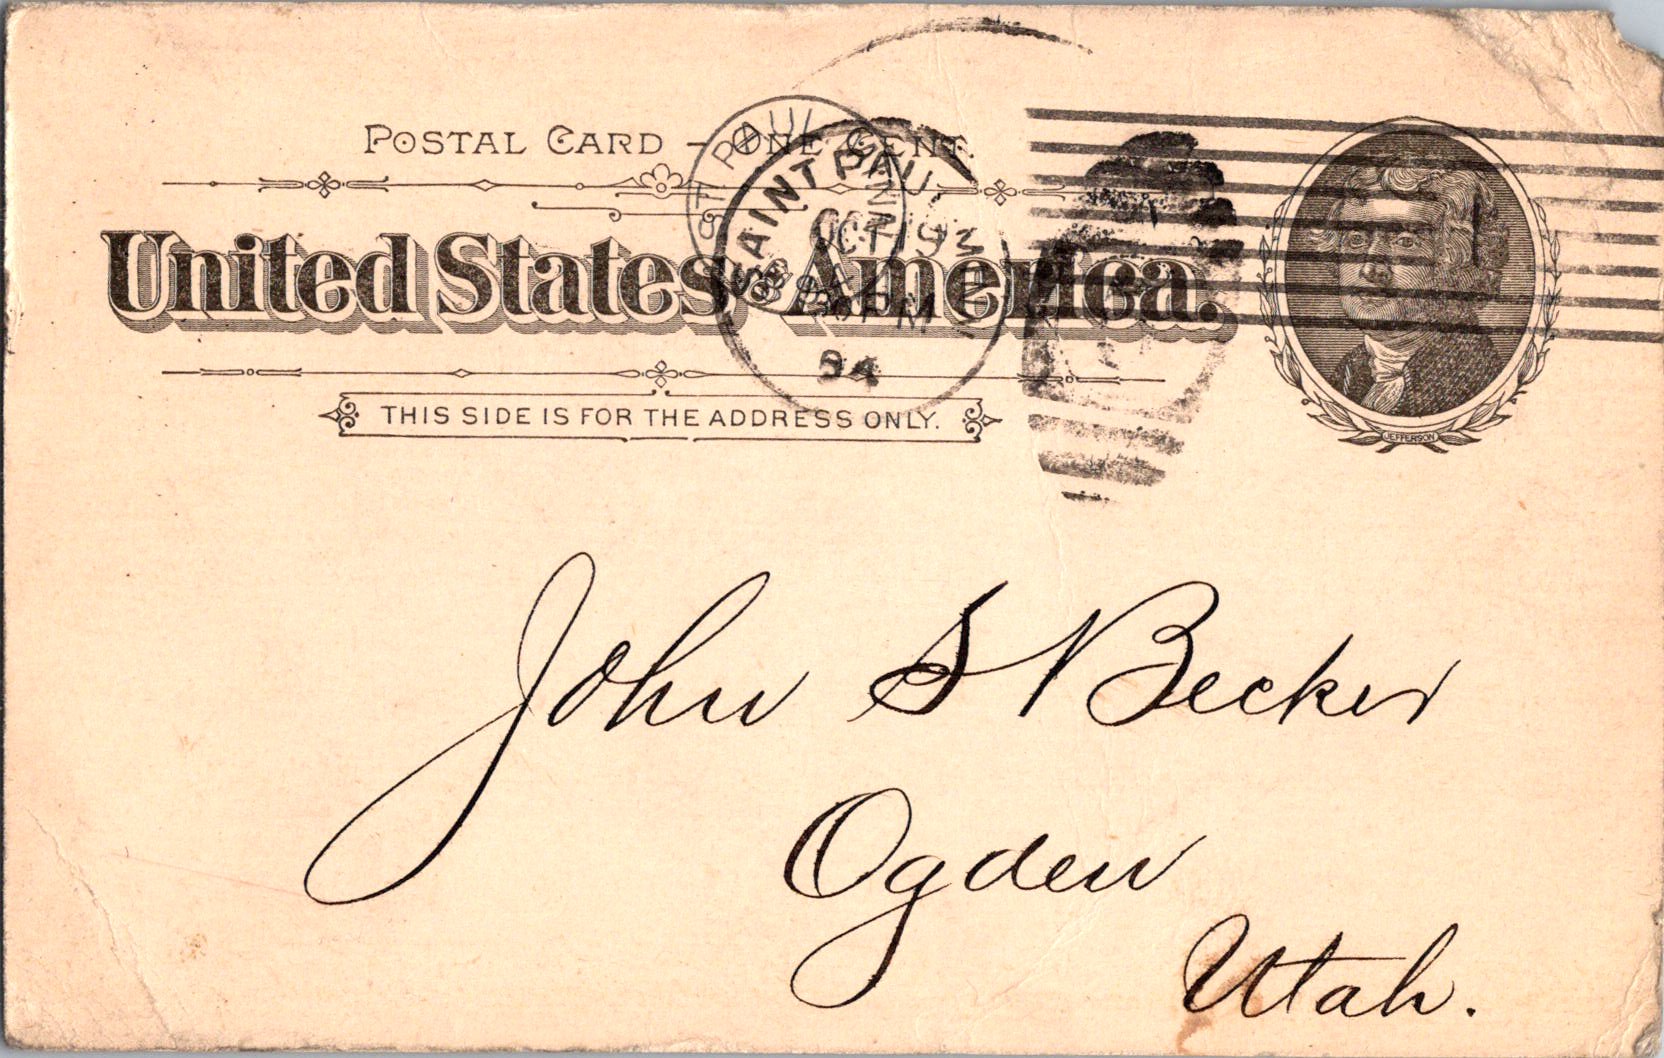 POSTAL CARD - ONE CENT.
United States America.
THIS SIDE IS FOR THE ADDRESS ONLY.
JEFFERSON
ST PAUL MINN
SAINT PAUL MINN
OCT 19
PM
94
John S Becker
Ogden
Utah.